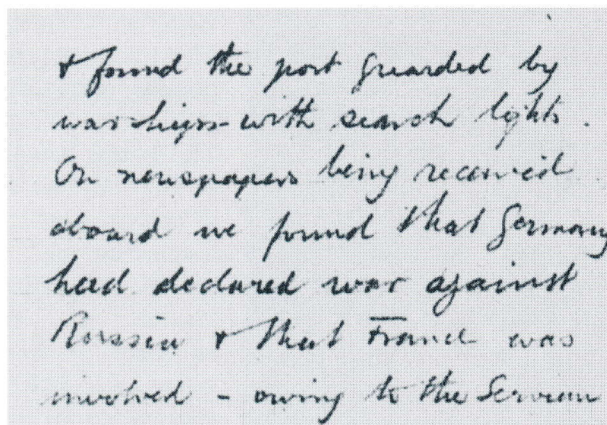 & found the port guarded by
warships with search lights.
On newspapers being received
aboard we found that Germany
had declared war against
Russia & that France was
involved - owing to the Servian